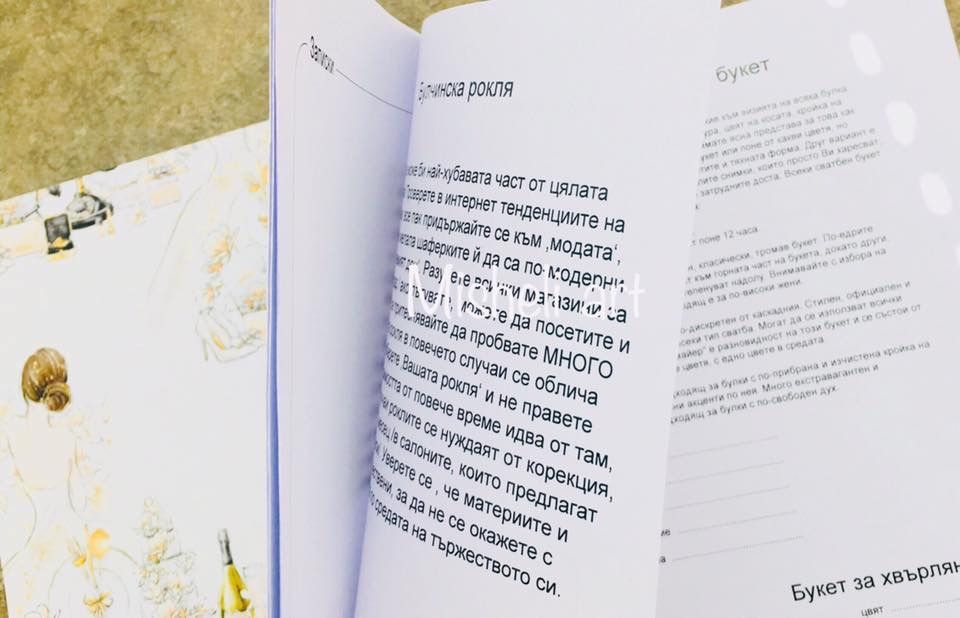 Записки
Булчинска рокля
би най-хубавата част от цялата
Проверете в интернет тенденциите на
все пак придържайте се към ‚модата‘,
шаферките й да са по-модерни
всички магазини са
можете да посетите и
да пробвате МНОГО
в повечето случаи се облича
‚Вашата рокля‘ и не правете
от повече време идва от там,
роклите се нуждаят от корекция,
/в салоните, които предлагат
Уверете се , че материите и
за да не се окажете с
средата на тържеството си.
Misheli art
букет
към визията на всяка булка
цвят на косата, кройка на
имате ясна представа за това как
букет или поне от какви цветя, но
и тяхната форма. Друг вариант е
снимки, които просто Ви харесват
затрудните доста. Всеки сватбен букет
поне 12 часа
класически, тромав букет. По-едрите
към горната част на букета, докато други,
надолу. Внимавайте с избора на
е за по-високи жени.
по-дискретен от каскадния. Стилен, официален и
всеки тип сватба. Могат да се използват всички
е разновидност на този букет и се състои от
цветя, с едно цвете в средата.
за булки с по-прибрана и изчистена кройка на
акценти по нея. Много екстравагантен и
за булки с по-свободен дух.
Букет за хвърлян
цвят